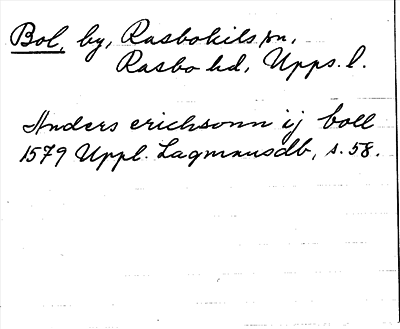 Bol, by, Rasbokils sn,
Rasbo hd, Upps. l.
Anders erichsonn ij boll
1579 Uppl. Lagmansdb, s. 58.